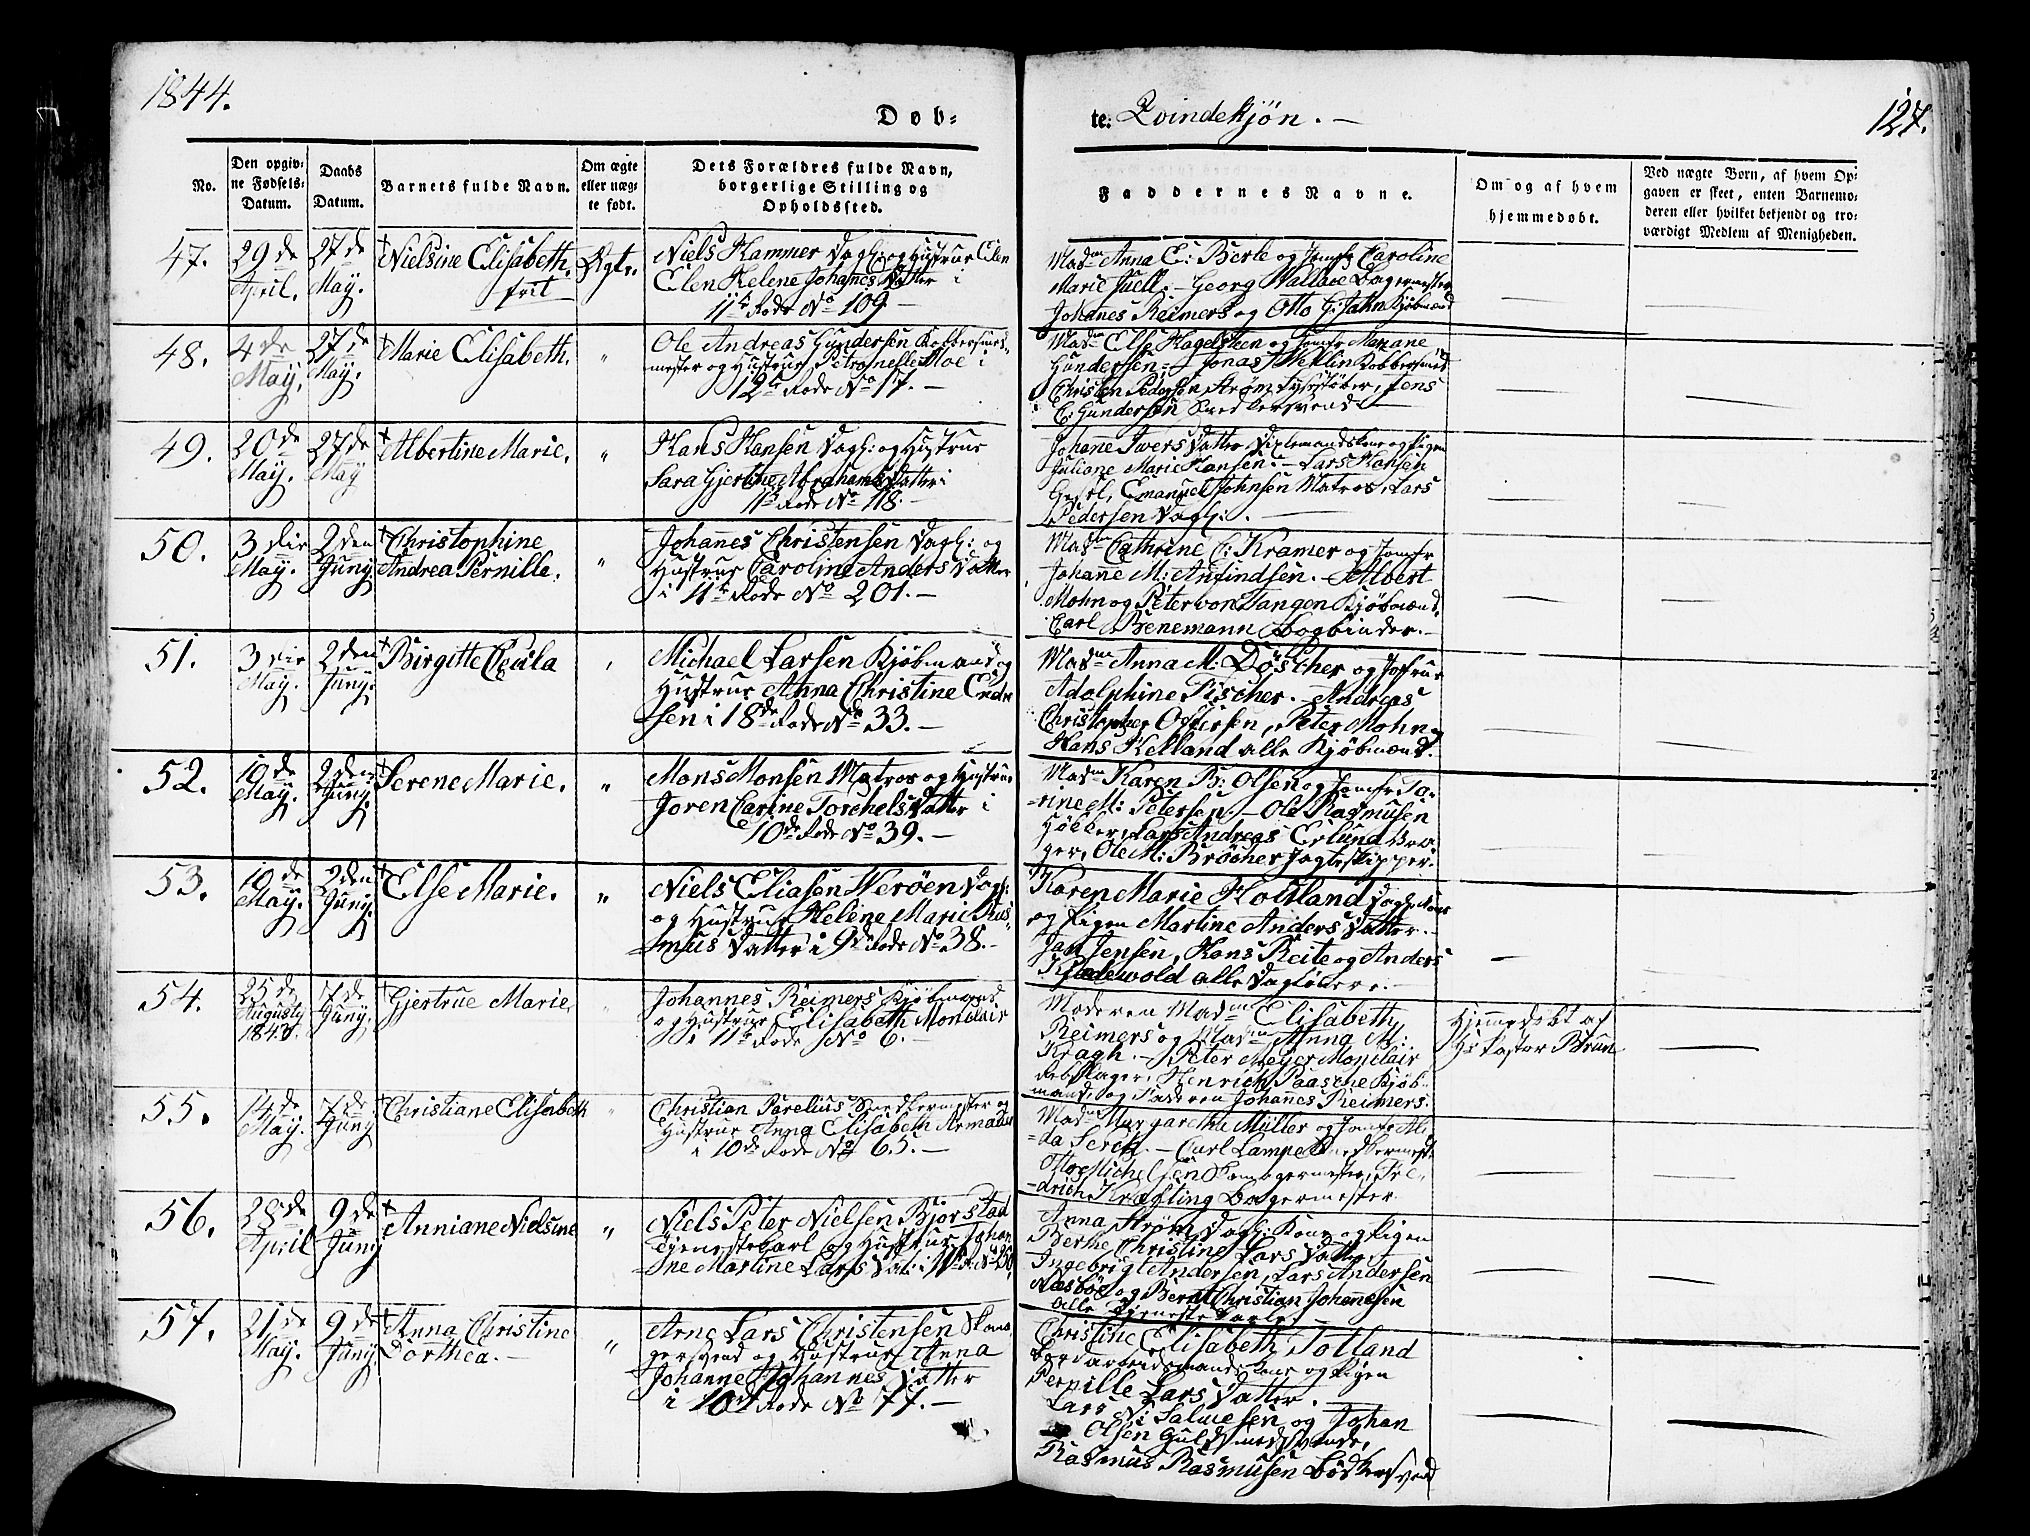 1844.
Døb-
te: Qvindekjøn. —
127.
No.
Den opgiv-
ne Fødsels-
Datum.
Daabs
Datum.
Barnets fulde Navn.
Om ægte
eller uæg-
te født.
Dets Forældres fulde Navn,
borgerlige Stilling og
Opholdssted.
Faddernes Navne.
Om og af hvem
hjemmedøbt.
Ved uægte Børn, af hvem Op-
gaven er skeet, enten Barnemo-
deren eller hvilket bekjendt og tro-
værdigt Medlem af Menigheden.
47.
29de
April.
27de
May.
Nielsine Elisabeth.
frit
Ægte.
Niels Hammer Dagl: og Hustrue Elen
Elen Helene Johannes Datter i
11te Rode No 109. —
Madm Anna C: Berle og Jomfr Caroline
Marie Juell. — Georg Wallace Bagermester
Johanes Reimers og Otto G: Jahn Kjøbmænd
48.
4de
May.
27de
May.
Marie Elisabeth.
"
Ole Andreas Gundersen Kobbersmed-
mester og Hustrue Petronelle Moe i
12te Rode No 17. —
Madm Else Hagelsteen og Jomfr Mariane
Gundersen. — Jonas Wellin Kobbersmed
Christen Pedersen Strøm Lysestøber, Jens
C: Gundersen Snedkersvend —
49.
20de
May.
27de
May
Albertine Marie.
"
Hans Hansen Dagl: og Hustrue
Sara Gjertine Abrahams Datter i
11te Rode No 118. —
Johane Iwers Datter Kone og Pigen
Juliane Marie Hansen. — Lars Hansen
Emanuel Johnsen Matros, Lars
Pedersen Dagl: . —
50.
3die
May.
2den
Juny
Christophine
Andrea Pernille.
"
Johanes Christensen Dagl: og
Hustrue Caroline Anders Datter
i 11te Rode No 201. —
Madm Cathrine C: Kramer og Jomfr
Johane M: Anfindsen. — Albert
Mohn og Peter von Tangen Kjøbmænd,
Carl Benemann Bogbinder. —
51.
3die
May.
2den
Juny.
Birgitte Cecila
"
Michael Larsen Kjøbmand og
Hustrue Anna Christine Endre
sen i 18de Rode No 33. —
Madm Anna M: Döscher og Jomfrue
Adolphine Fischer. — Andreas
Christopher Peter Mohn og
Hans Helland alle Kjøbmænd.
52.
19de
May.
2den
Juny.
Serene Marie.
"
Mons Monsen Matros og Hustrue
Joren Carine Torchels Datter i
10de Rode No 39. —
Madm Karen B: Olsen og Jomfr Ta-
-rine M: Petersen. — Ole Rasmusen
Høkker, Lars Andreas Erlund Dra-
ger, Ole M: Brøcher Jagteskipper.
53.
19de
May.
2den
Juny.
Else Marie.
"
Niels Eliasen Werøen Dagl:
og Hustrue Helene Marie Ras-
mus Datter i 9de Rode No 38. —
Karen Marie Holtland Dagl: Kone
og Pigen Martine Anders Datter. —
Jan Jensen, Hans Reite og Anders
alle Dagløbere. —
54.
25de
Augusty
1843.
7de
Juny.
Gjertrue Marie
"
Johannes Reimers Kjøbmand
og Hustrue Elisabeth Monclair
i 11te Rode No 6. —
Moderen Madm Elisabeth
Reimers og Madm Anna M:
Kragh. — Peter Meyer Monclair
Rebslager, Henrich Paasche Kjøb-
mand, og Faderen Johanes Reimers.
Hjemmedøbt af
Hr Pastor Brun
55.
14de
May.
7de
Juny
Christiane Elisabeth
"
Christian Parelius Snedkermester og
Hustrue Anna Elisabeth
i 10de Rode No 65. —
Madm Margarethe Müller og Jomfr Al-
da Serck. — Carl Lampe Snedkermest:
Michelsen mester, Fre-
-drich Kræfting Bagermester
56.
28de
April
9de
Juny
Anniane Nielsine
"
Niels Peter Nielsen Bjorstad
Tjenestekarl og Hustrue Johan-
ne Martine Lars Dat: i 11te R: No 250.
Anna Strøm Dagl: Kone og Pigen
Berthe Christine Lars Datter,
Ingebrigt Andersen, Lars Andersen
Næsbøe og Bernt Christian Johannesen
alle Tjenestekarle.
57.
21de
May.
9de
Juny
Anna Christine
Dorthea. —
"
Arne Lars Christensen Skoma-
gersvend og Hustrue Anna
Johanne Johannes Datter
i 10de Rode No 77. —
Christine Elisabeth Tolland
Bordarbeidsmands Kone og Pigen
Pernille Lars Datter. —
Lars N: Salvesen og Johan
Olsen Guldsmedsvende,
Rasmus Rasmusen Bødkersvend